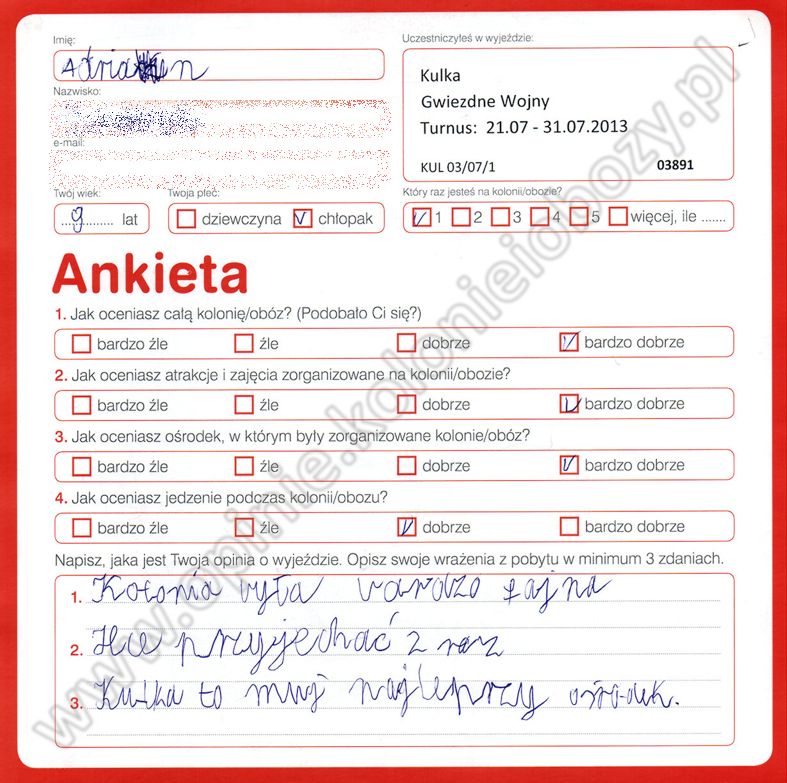 Imię:
Adrian
Nazwisko:
e-mail:
Twój wiek:
9 lat
Twoja płeć:
dziewczyna chłopak
Uczestniczyłeś w wyjeździe:
Kulka
Gwiezdne Wojny
Turnus: 21.07 - 31.07.2013
KUL 03/07/1 03891
Który raz jesteś na kolonii/obozie?
1 2 3 4 5 więcej, ile .......
Ankieta
1. Jak oceniasz całą kolonię/obóz? (Podobało Ci się?)
bardzo źle źle dobrze bardzo dobrze
2. Jak oceniasz atrakcje i zajęcia zorganizowane na kolonii/obozie?
bardzo źle źle dobrze bardzo dobrze
3. Jak oceniasz ośrodek, w którym były zorganizowane kolonie/obóz?
bardzo źle źle dobrze bardzo dobrze
4. Jak oceniasz jedzenie podczas kolonii/obozu?
bardzo źle źle dobrze bardzo dobrze
Napisz, jaka jest Twoja opinia o wyjeździe. Opisz swoje wrażenia z pobytu w minimum 3 zdaniach.
1. Kołonia była bardzo fajna
2. Hce przyjechać 2 raz
3. Kulka to muj najleprzy ośrodek.
www.opinie.kolonieiobozy.pl